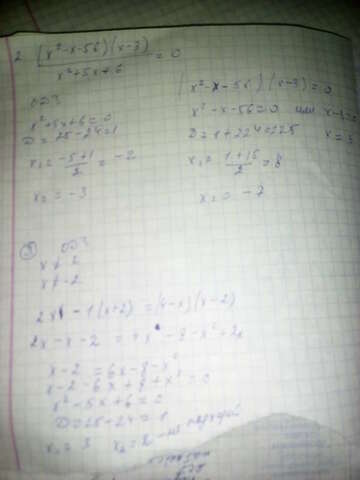 2. (x²-x-56)(x-3) / x²+5x+6 = 0
ОДЗ
x²+5x+6=0
D=25-24=1
x₁=(-5+1)/2=-2
x₂=-3
(x²-x-56)(x-3)=0
x²-x-56=0 или x-3=0
D=1+224=225 x=3
x₁=(1+15)/2=8
x₂=-7
③ ОДЗ
x≠2
x≠-2
2x-1(x+2)=(4-x)(x-2)
2x-x-2=4x-8-x²+2x
x-2=6x-8-x²
x-2-6x+8+x²=0
x²-5x+6=0
D=25-24=1
x₁=3 x₂=2-не